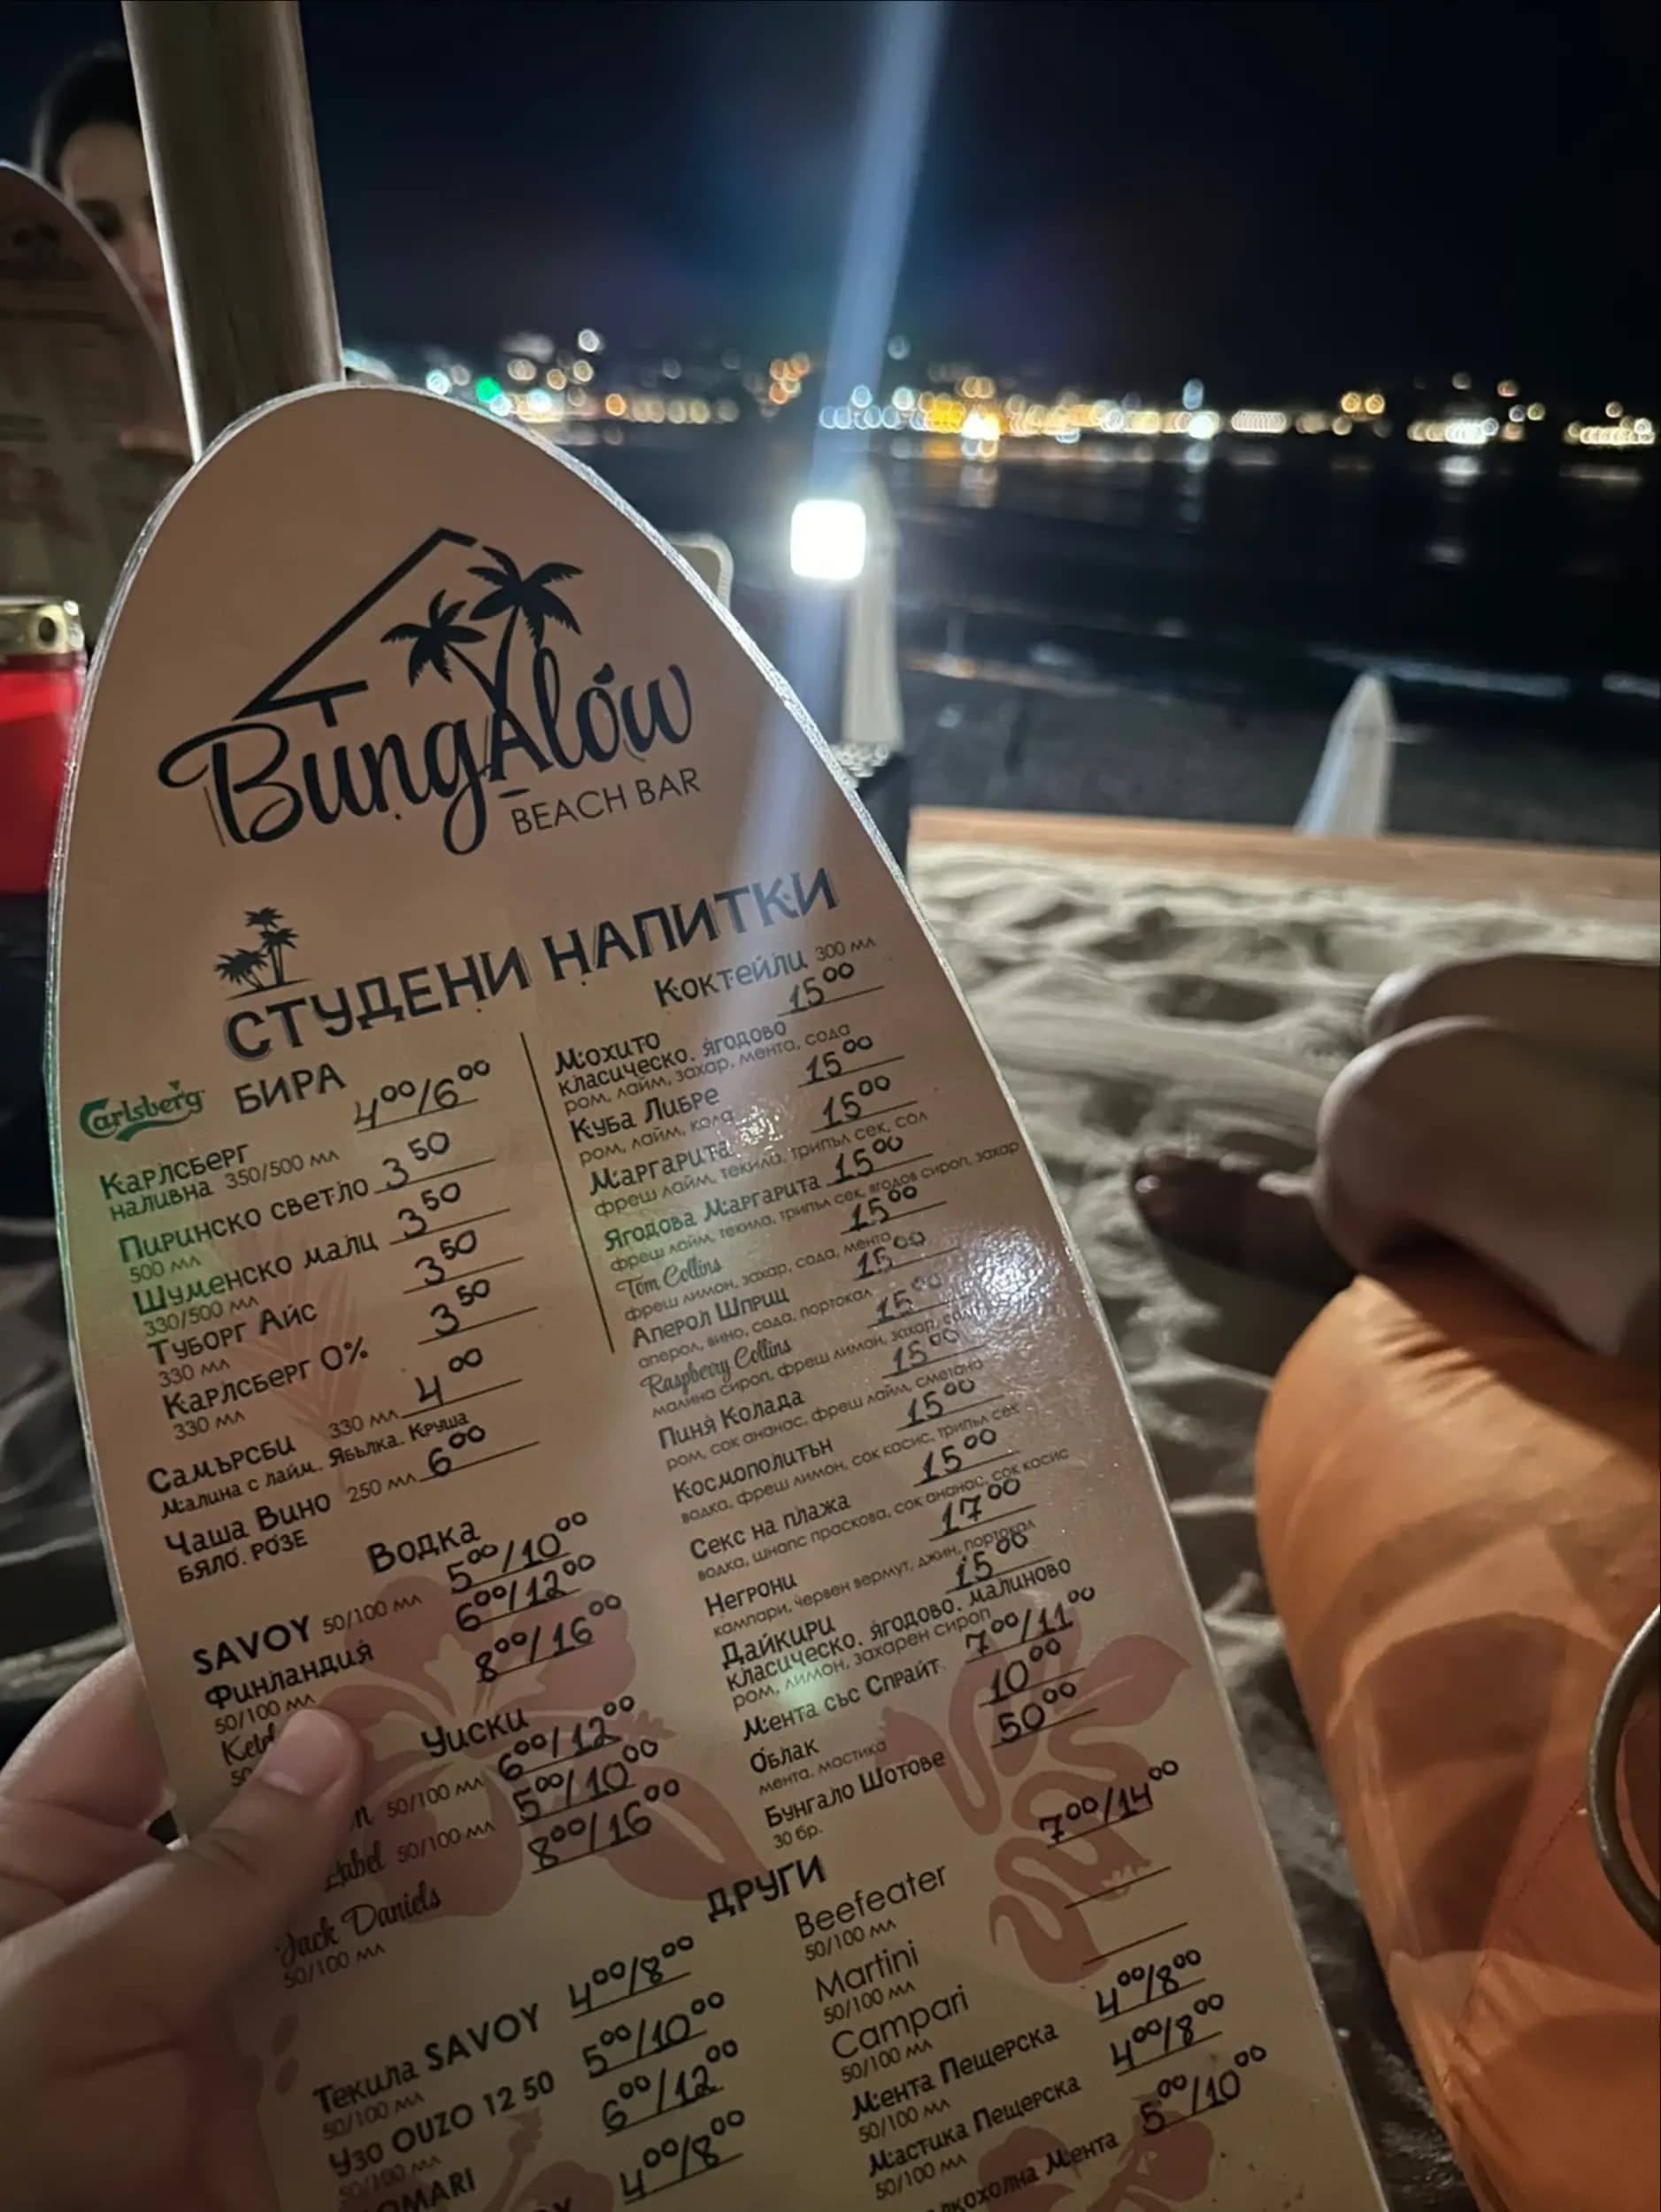 BungAlow
BEACH BAR
СТУДЕНИ НАПИТКИ
Carlsberg БИРА
Карлсберг 4⁰⁰/6⁰⁰
наливна 350/500 мл
Пиринско светло 3⁵⁰
500 мл
Шуменско малц 3⁵⁰
330/500 мл
Туборг Айс 3⁵⁰
330 мл
Карлсберг 0% 3⁵⁰
330 мл
Самърсби 330 мл 4⁰⁰
Малина с лайм. Ябълка. Круша
Чаша Вино 250 мл 6⁰⁰
БЯЛО. РОЗЕ
Водка
SAVOY 50/100 мл 5⁰⁰/10⁰⁰
Финландия 6⁰⁰/12⁰⁰
50/100 мл
8⁰⁰/16⁰⁰
Уиски
50/100 мл 6⁰⁰/12⁰⁰
50/100 мл 5⁰⁰/10⁰⁰
Jack Daniels 8⁰⁰/16⁰⁰
50/100 мл
Коктейли 300 мл
Мохито 15⁰⁰
класическо. ягодово
ром, лайм, захар, мента, сода
Куба Либре 15⁰⁰
ром, лайм, кола
Маргарита 15⁰⁰
фреш лайм, текила, трипъл сек, сол
Ягодова Маргарита 15⁰⁰
фреш лайм, текила, трипъл сек, ягодов сироп, захар
Tom Collins 15⁰⁰
фреш лимон, захар, сода, мента
Аперол Шприц 15⁰⁰
аперол, вино, сода, портокал
Raspberry Collins 15⁰⁰
малина сироп, фреш лимон, захар,
Пиня Колада 15⁰⁰
ром, сок ананас, фреш лайм, сметана
Космополитън 15⁰⁰
водка, фреш лимон, сок касис, трипъл сек
Секс на плажа 15⁰⁰
водка, шнапс праскова, сок ананас, сок касис
Негрони 17⁰⁰
кампари, червен вермут, джин, портокал
Дайкири 15⁰⁰
класическо. ягодово. малиново
ром, лимон, захарен сироп
Мента със Спрайт 7⁰⁰/11⁰⁰
Облак 10⁰⁰
мента, мастика
Бунгало Шотове 50⁰⁰
30 бр.
ДРУГИ
Текила SAVOY 4⁰⁰/8⁰⁰
50/100 мл
Узо OUZO 12 50 5⁰⁰/10⁰⁰
50/100 мл
6⁰⁰/12⁰⁰
4⁰⁰/8⁰⁰
Beefeater 7⁰⁰/14⁰⁰
50/100 мл
Martini
50/100 мл
Campari
50/100 мл
Мента Пещерска 4⁰⁰/8⁰⁰
50/100 мл
Мастика Пещерска 4⁰⁰/8⁰⁰
50/100 мл
Мента 5⁰⁰/10⁰⁰